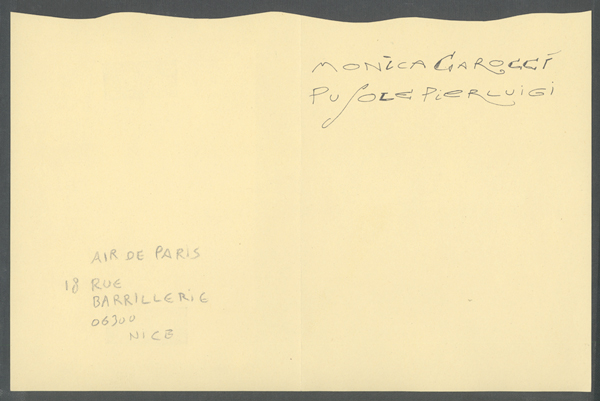 MONICA CAROCCI
PUSOLE PIERLUIGI
AIR DE PARIS
18 RUE
BARRILLERIE
06300
NICE